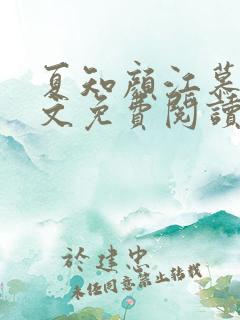 夏知顏江慕
文免費閱讀
於建忠
未经同意禁止转载